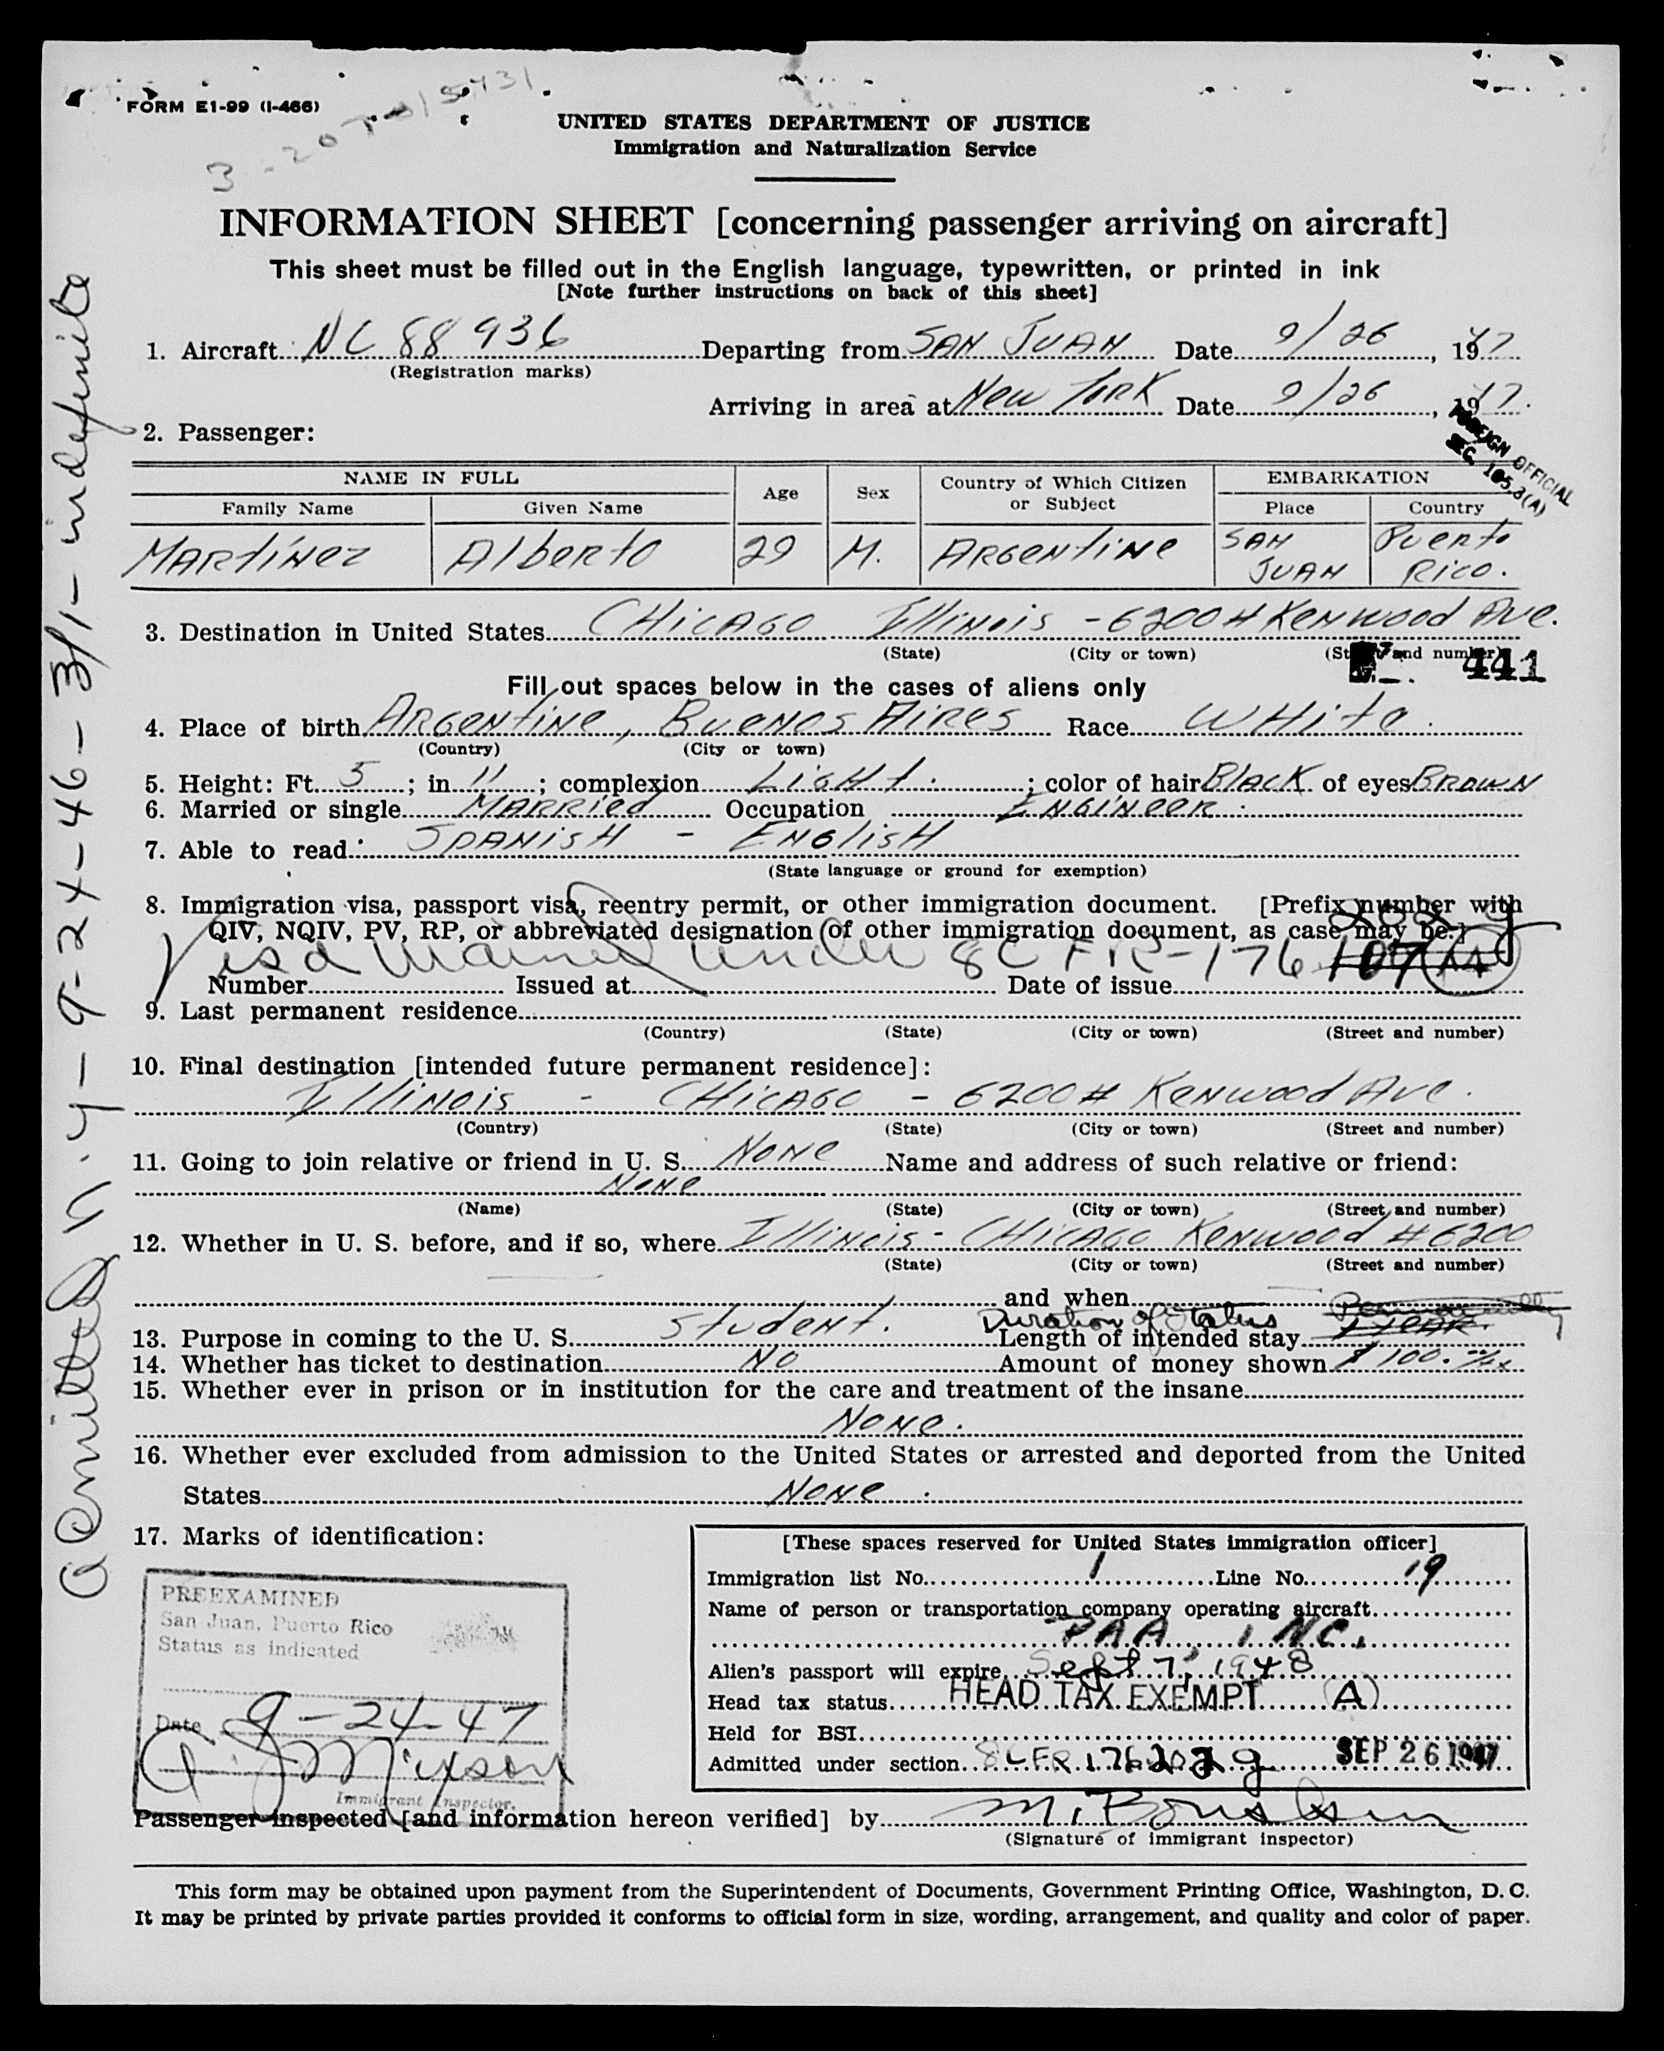 FORM E1-99 (I-466)
UNITED STATES DEPARTMENT OF JUSTICE
Immigration and Naturalization Service
INFORMATION SHEET [concerning passenger arriving on aircraft]
This sheet must be filled out in the English language, typewritten, or printed in ink
[Note further instructions on back of this sheet]
1. Aircraft NC 88936 Departing from SAN JUAN Date 9/26, 1947
(Registration marks)
Arriving in area at New York Date 9/26, 1947.
FOREIGN OFFICIAL
SEC. 105.3(A)
2. Passenger:
NAME IN FULL
Family Name Given Name Age Sex Country of Which Citizen or Subject EMBARKATION Place Country
MARtíNez Alberto 29 M. ARGentiNe SAN JUAN Puerto Rico.
3. Destination in United States CHiCAGO IlliNois - 6200 # KeNwood Ave.
(State) (City or town) (Street and number)
441
Fill out spaces below in the cases of aliens only
4. Place of birth ARGentiNe, BueNos AiRes Race WHite.
(Country) (City or town)
5. Height: Ft. 5; in. 11; complexion LiGHt.; color of hair BlacK. of eyes BROWN
6. Married or single MARRied Occupation ENGiNeeR.
7. Able to read SPANisH - ENGlisH
(State language or ground for exemption)
8. Immigration visa, passport visa, reentry permit, or other immigration document. [Prefix number with
QIV, NQIV, PV, RP, or abbreviated designation of other immigration document, as case may be.]
Visa Waived under 8 CFR-176
Number Issued at Date of issue
9. Last permanent residence
(Country) (State) (City or town) (Street and number)
10. Final destination [intended future permanent residence]:
IlliNois - CHiCAGO - 6200 # KeNwood Ave.
(Country) (State) (City or town) (Street and number)
11. Going to join relative or friend in U. S. NoNe Name and address of such relative or friend:
NoNe
(Name) (State) (City or town) (Street and number)
12. Whether in U. S. before, and if so, where IlliNois - CHiCAGO KeNwood # 6200
(State) (City or town) (Street and number)
and when
13. Purpose in coming to the U. S. StudeNt. Length of intended stay Duration of Status
14. Whether has ticket to destination NO Amount of money shown $100.
15. Whether ever in prison or in institution for the care and treatment of the insane
NoNe.
16. Whether ever excluded from admission to the United States or arrested and deported from the United
States NoNe.
17. Marks of identification:
PREEXAMINED
San Juan, Puerto Rico
Status as indicated
Date 9-24-47
Mixson
Immigrant Inspector.
[These spaces reserved for United States immigration officer]
Immigration list No. 1 Line No. 19
Name of person or transportation company operating aircraft
PAA, INC.
Alien's passport will expire Sept 7, 1948
Head tax status HEAD TAX EXEMPT (A)
Held for BSI
Admitted under section 8 CFR 176.202 g SEP 26 1947
Passenger inspected [and information hereon verified] by
(Signature of immigrant inspector)
This form may be obtained upon payment from the Superintendent of Documents, Government Printing Office, Washington, D. C.
It may be printed by private parties provided it conforms to official form in size, wording, arrangement, and quality and color of paper.
Admitted N.Y. - 9-24-46 - 3/1 - indefinite